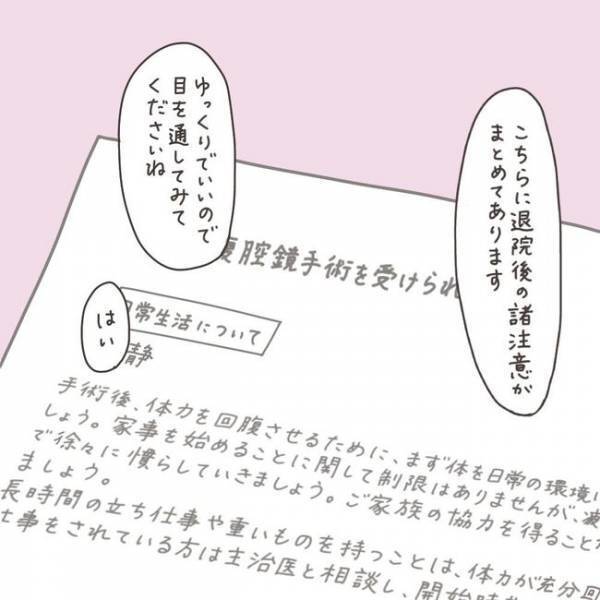 こちらに退院後の諸注意が
まとめてあります
ゆっくりでいいので
目を通してみて
くださいね
はい
腹腔鏡手術を受けられ
日常生活について
静
手術後、体力を回腹させるために、まず体を日常の環境に
しょう。家事を始めることに関して制限はありませんが、
で徐々に慣らしていきましょう。ご家族の協力を得ること
ましょう。
長時間の立ち仕事や重いものを持つことは、体力が充分回
仕事をされている方は主治医と相談し、開始時